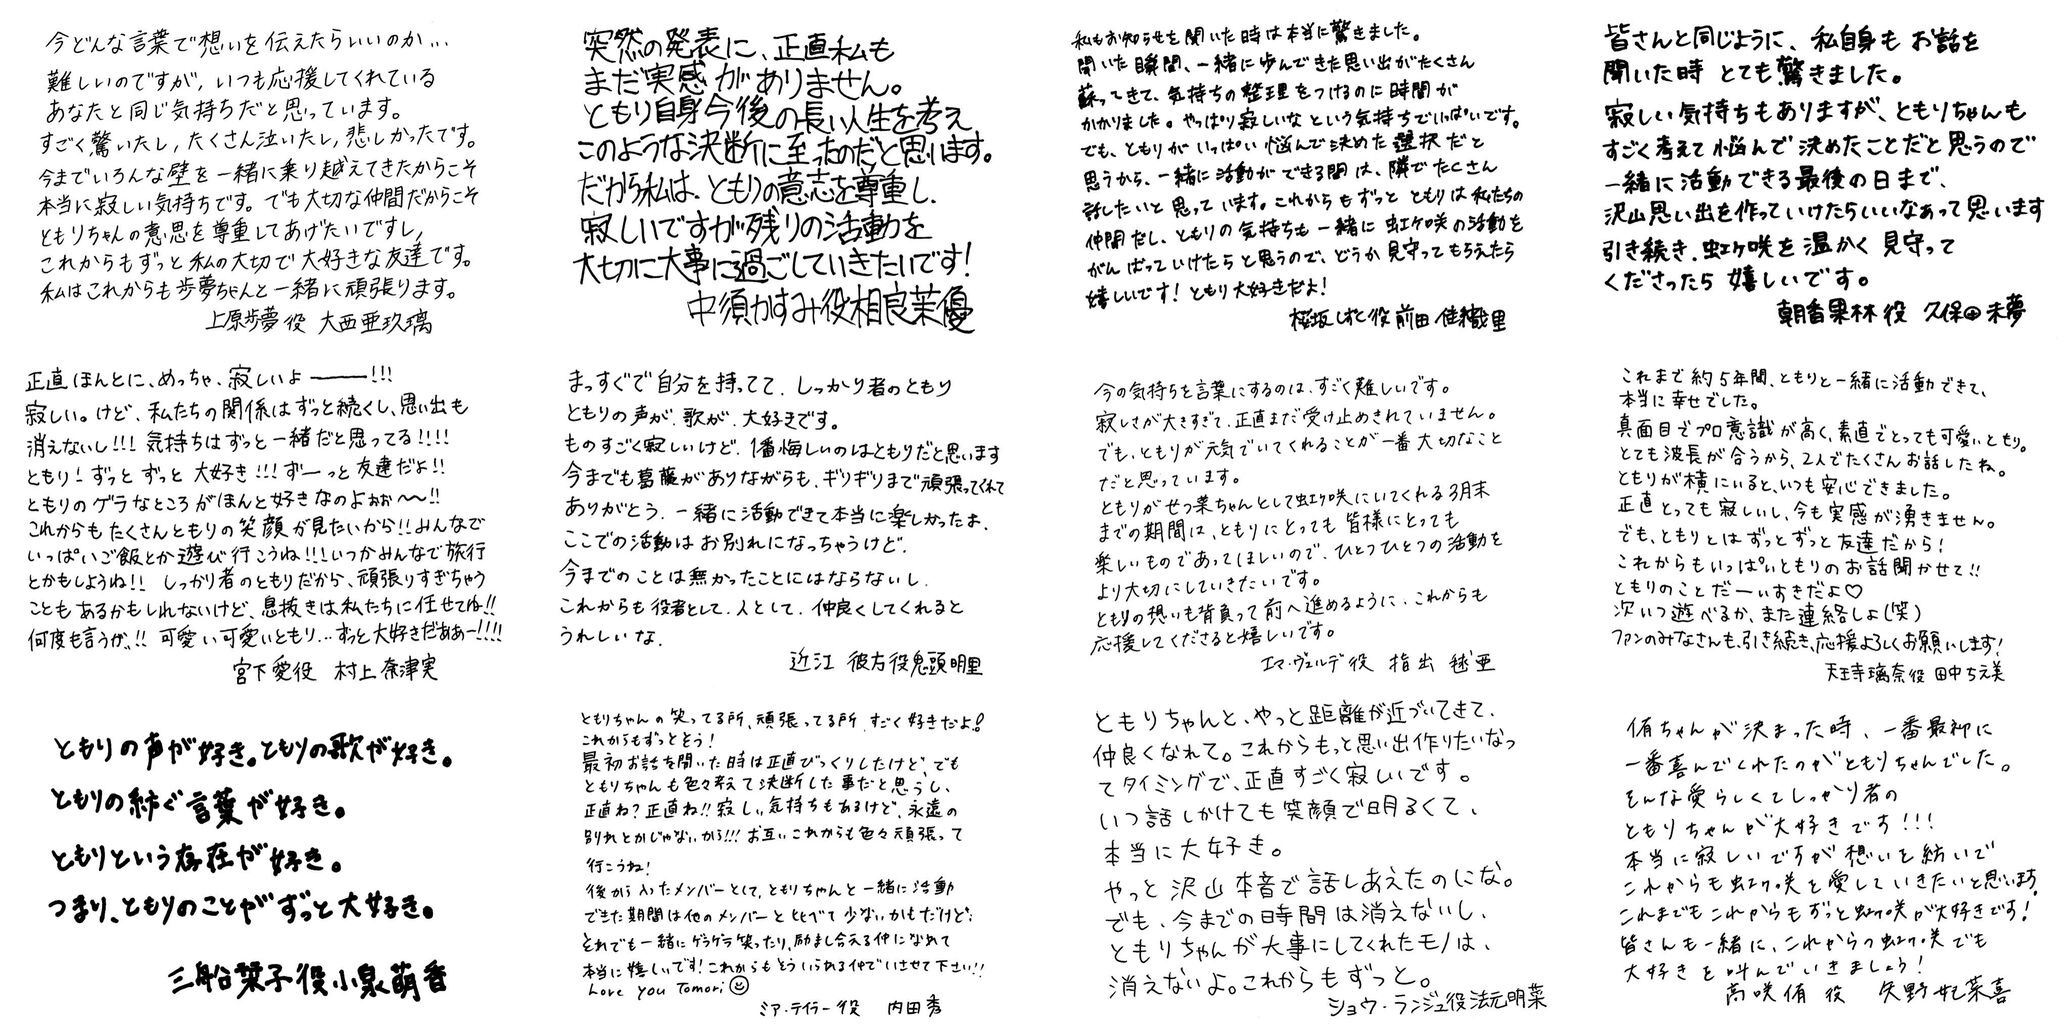 今どんな言葉で想いを伝えたらいいのか...
難しいのですが,いつも応援してくれている
あなたと同じ気持ちだと思っています。
すごく驚いたし,たくさん泣いたし,悲しかったです。
今までいろんな壁を一緒に乗り越えてきたからこそ
本当に寂しい気持ちです。でも大切な仲間だからこそ
ともりちゃんの意思を尊重してあげたいですし,
これからもずっと私の大切で大好きな友達です。
私はこれからも歩夢ちゃんと一緒に頑張ります。
上原歩夢役 大西亜玖璃
突然の発表に、正直私も
まだ実感がありません。
ともり自身今後の長い人生を考え
このような決断に至ったのだと思います。
だから私は、ともりの意志を尊重し、
寂しいですが残りの活動を
大切に大事に過ごしていきたいです!
中須かすみ役相良茉優
私もお知らせを聞いた時は本当に驚きました。
聞いた瞬間、一緒に歩んできた思い出がたくさん
蘇ってきて、気持ちの整理をつけるのに時間が
かかりました。やっぱり寂しいなという気持ちでいっぱいです。
でも、ともりがいっぱい悩んで決めた選択だと
思うから、一緒に活動ができる間は、隣でたくさん
話したいと思っています。これからもずっとともりは私たちの
仲間だし、ともりの気持ちも一緒に虹ヶ咲の活動を
がんばっていけたらと思うので、どうか見守ってもらえたら
嬉しいです!ともり大好きだよ!
桜坂しずく役前田佳織里
皆さんと同じように、私自身もお話を
聞いた時とても驚きました。
寂しい気持ちもありますが、ともりちゃんも
すごく考えて悩んで決めたことだと思うので
一緒に活動できる最後の日まで、
沢山思い出を作っていけたらいいなぁって思います
引き続き、虹ヶ咲を温かく見守って
くださったら嬉しいです。
朝香果林役 久保田未夢
正直ほんとに、めっちゃ、寂しいよ―――!!!
寂しい。けど、私たちの関係はずっと続くし、思い出も
消えないし!!!気持ちはずっと一緒だと思ってる!!!!
ともり!ずっとずっと大好き!!!ずーっと友達だよ!!
ともりのゲラなところがほんと好きなのよぉぉ〜〜!!
これからもたくさんともりの笑顔が見たいから!!みんなで
いっぱいご飯とか遊び行こうね!!!いつかみんなで旅行
とかもしようね!! しっかり者のともりだから、頑張りすぎちゃう
こともあるかもしれないけど、息抜きは私たちに任せてね!!
何度も言うが、!!可愛い可愛いともり...ずっと大好きだああー!!!!
宮下愛役 村上奈津実
まっすぐで自分を持ってて、しっかり者のともり
ともりの声が、歌が、大好きです。
ものすごく寂しいけど、1番悔しいのはともりだと思います
今までも葛藤がありながらも、ギリギリまで頑張ってくれて
ありがとう、一緒に活動できて本当に楽しかったよ、
ここでの活動はお別れになっちゃうけど、
今までのことは無かったことにはならないし、
これからも役者として、人として、仲良くしてくれると
うれしいな、
近江彼方役鬼頭明里
今の気持ちを言葉にするのは、すごく難しいです。
寂しさが大きすぎて、正直まだ受け止めきれていません。
でも、ともりが元気でいてくれることが一番大切なこと
だと思っています。
ともりがせつ菜ちゃんとして虹ヶ咲にいてくれる3月末
までの期間は、ともりにとっても皆様にとっても
楽しいものであってほしいので、ひとつひとつの活動を
より大切にしていきたいです。
ともりの想いも背負って前へ進めるように、これからも
応援してくださると嬉しいです。
エマ・ヴェルデ役 指出毬亜
これまで約5年間、ともりと一緒に活動できて、
本当に幸せでした。
真面目でプロ意識が高く、素直でとっても可愛いともり。
とても波長が合うから、2人でたくさんお話したね。
ともりが横にいると、いつも安心できました。
正直とっても寂しいし、今も実感が湧きません。
でも、ともりとはずっとずっと友達だから!
これからもいっぱいともりのお話聞かせて!!
ともりのことだーいすきだよ♡
次いつ遊べるか、また連絡しよ(笑)
ファンのみなさんも、引き続き、応援よろしくお願いします!
天王寺璃奈役 田中ちえ美
ともりの声が好き。ともりの歌が好き。
ともりの紡ぐ言葉が好き。
ともりという存在が好き。
つまり、ともりのことがずっと大好き。
三船栞子役小泉萌香
ともりちゃんの笑ってる所、頑張ってる所、すごく好きだよ!
これからもずっとそう!
最初お話を聞いた時は正直びっくりしたけど、でも
ともりちゃんも色々考えて決断した事だと思うし、
正直ね?正直ね!!寂しい気持ちもあるけど、永遠の
別れとかじゃないから!!!お互いこれからも色々頑張って
行こうね!
後から入ったメンバーとして、ともりちゃんと一緒に活動
できた期間は他のメンバーと比べて少ないかもだけど、
それでも一緒にゲラゲラ笑ったり、励まし合える仲になれて
本当に嬉しいです!これからもそういられる仲でいさせて下さい!!
Love you Tomori☺
ミア・テイラー役 内田秀
ともりちゃんと、やっと距離が近づいてきて、
仲良くなれて。これからもっと思い出作りたいなっ
てタイミングで、正直すごく寂しいです。
いつ話しかけても笑顔で明るくて、
本当に大好き。
やっと沢山本音で話しあえたのにな。
でも、今までの時間は消えないし、
ともりちゃんが大事にしてくれたモノは、
消えないよ。これからもずっと。
ショウ・ランジュ役法元明菜
侑ちゃんが決まった時、一番最初に
一番喜んでくれたのがともりちゃんでした。
そんな愛らしくてしっかり者の
ともりちゃんが大好きです!!!
本当に寂しいですが想いを紡いで
これからも虹ヶ咲を愛していきたいと思います。
これまでもこれからもずっと虹ヶ咲が大好きです!
皆さんも一緒に、これからの虹ヶ咲でも
大好きを叫んでいきましょう!
高咲侑役 矢野妃菜喜